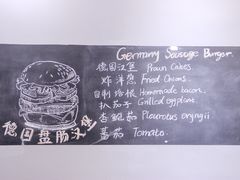 Germany Sausage Burger.
德国汉堡 Prawn Cakes.
炸洋葱 Fried Onions.
自制培根 Homemade bacon.
扒茄子 Grilled eggplant.
杏鲍菇 Pleurotus eryngii.
蕃茄 Tomato.
德国盘肠汉堡